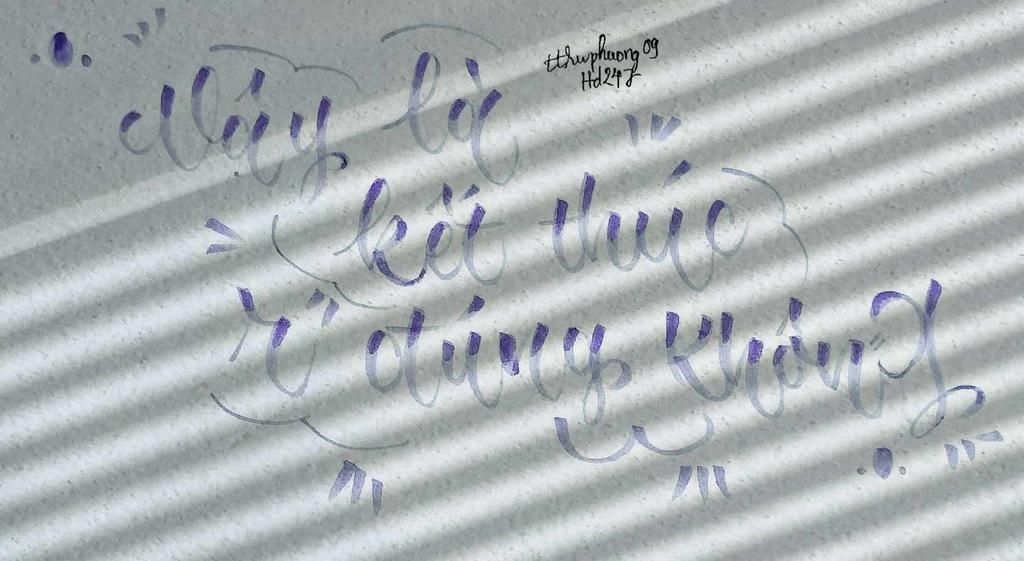 Đây là
tthuphuong09
Hd247
kết thúc
rồi đúng không